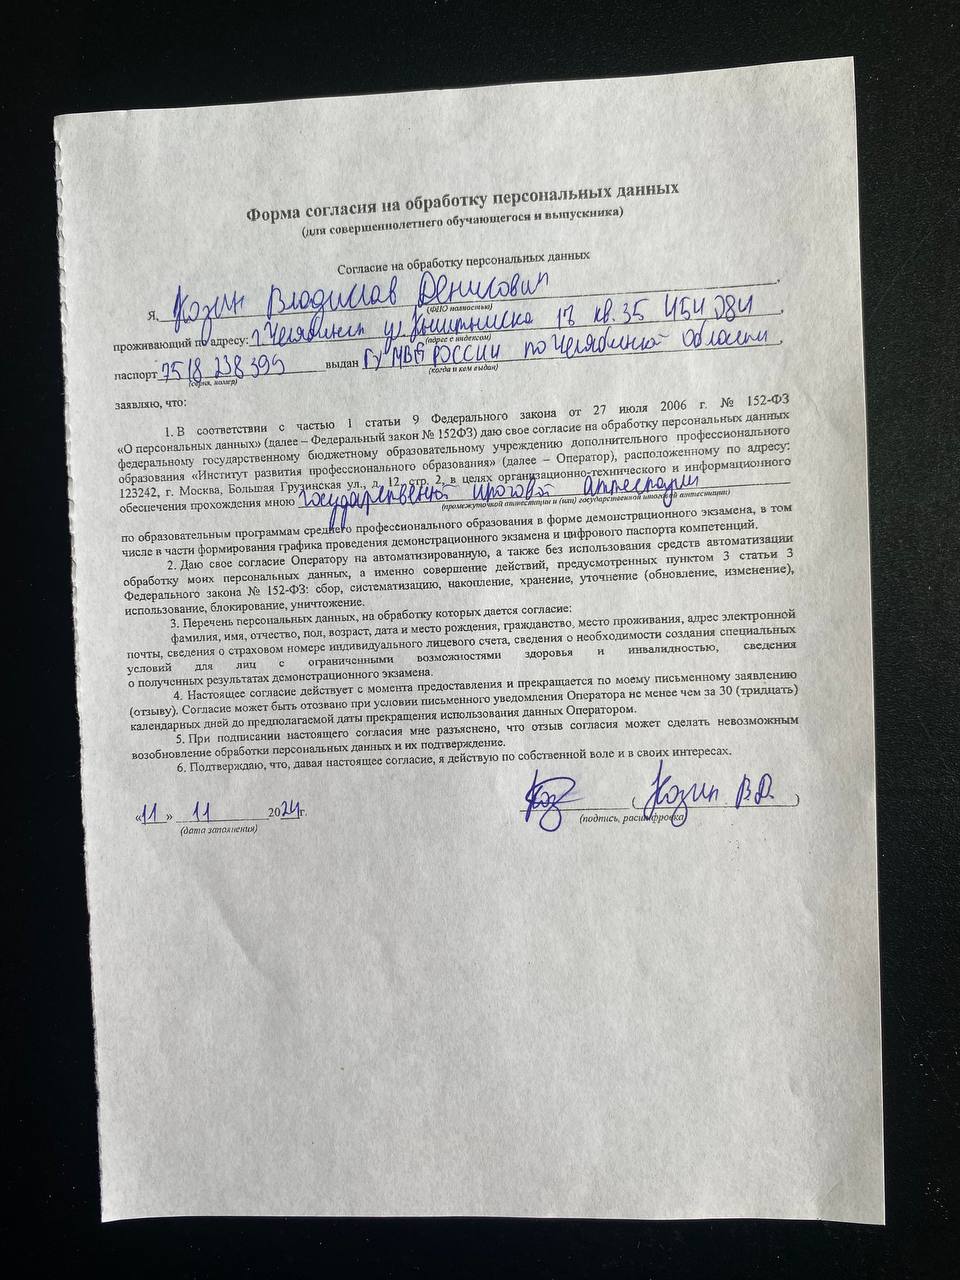 Форма согласия на обработку персональных данных
(для совершеннолетнего обучающегося и выпускника)
Согласие на обработку персональных данных
Я, Козин Владислав Денисович,
(ФИО полностью)
проживающий по адресу: г. Челябинск ул. 17 кв. 35 454084,
(адрес с индексом)
паспорт 7518 238399 выдан ГУ МВД РОССИИ по Челябинской области,
(серия, номер) (когда и кем выдан)
заявляю, что:
1. В соответствии с частью 1 статьи 9 Федерального закона от 27 июля 2006 г. № 152-ФЗ
«О персональных данных» (далее – Федеральный закон № 152ФЗ) даю свое согласие на обработку персональных данных
федеральному государственному бюджетному образовательному учреждению дополнительного профессионального
образования «Институт развития профессионального образования» (далее – Оператор), расположенному по адресу:
123242, г. Москва, Большая Грузинская ул., д. 12, стр. 2, в целях организационно-технического и информационного
обеспечения прохождения мною государственной итоговой аттестации
(промежуточной аттестации и (или) государственной итоговой аттестации)
по образовательным программам среднего профессионального образования в форме демонстрационного экзамена, в том
числе в части формирования графика проведения демонстрационного экзамена и цифрового паспорта компетенций.
2. Даю свое согласие Оператору на автоматизированную, а также без использования средств автоматизации
обработку моих персональных данных, а именно совершение действий, предусмотренных пунктом 3 статьи 3
Федерального закона № 152-ФЗ: сбор, систематизацию, накопление, хранение, уточнение (обновление, изменение),
использование, блокирование, уничтожение.
3. Перечень персональных данных, на обработку которых дается согласие:
фамилия, имя, отчество, пол, возраст, дата и место рождения, гражданство, место проживания, адрес электронной
почты, сведения о страховом номере индивидуального лицевого счета, сведения о необходимости создания специальных
условий для лиц с ограниченными возможностями здоровья и инвалидностью, сведения
о полученных результатах демонстрационного экзамена.
4. Настоящее согласие действует с момента предоставления и прекращается по моему письменному заявлению
(отзыву). Согласие может быть отозвано при условии письменного уведомления Оператора не менее чем за 30 (тридцать)
календарных дней до предполагаемой даты прекращения использования данных Оператором.
5. При подписании настоящего согласия мне разъяснено, что отзыв согласия может сделать невозможным
возобновление обработки персональных данных и их подтверждение.
6. Подтверждаю, что, давая настоящее согласие, я действую по собственной воле и в своих интересах.
«11» 11 2024г. Коз (Козин В.Д.)
(дата заполнения) (подпись, расшифровка)